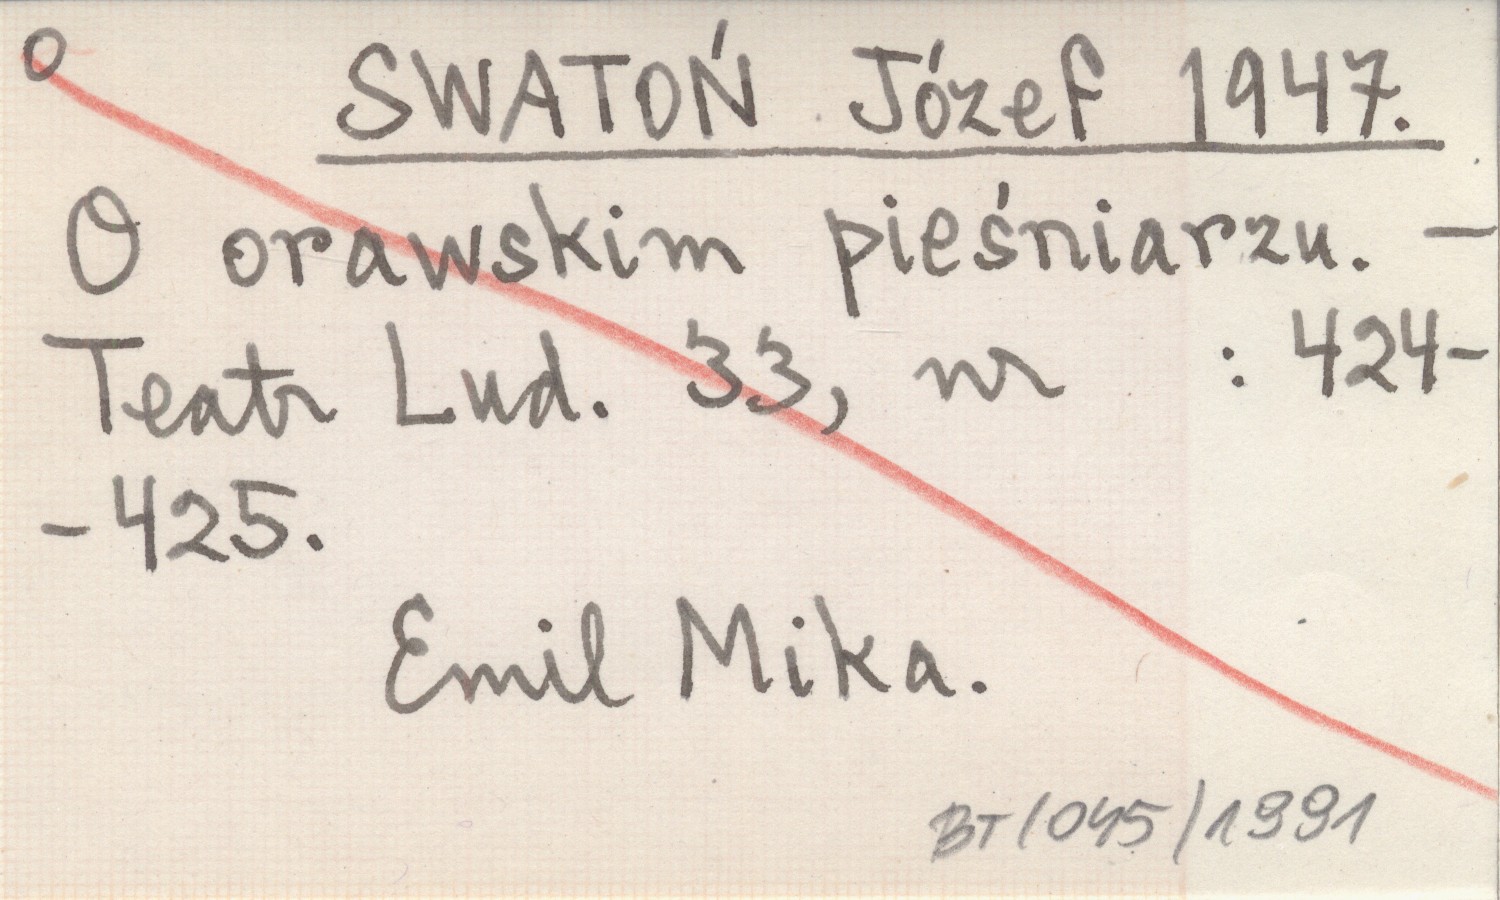 O
SWATOŃ Józef 1947.
O orawskim pieśniarzu. -
Teatr Lud. 33, nr : 424-
-425.
Emil Mika.
BT/045/1991